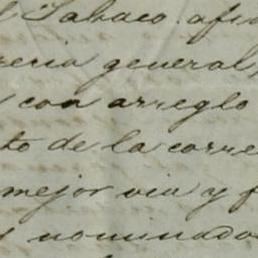 l Tabaco. afi
reria general,
con arreglo
to de la corre
mejor via y f
s nominado